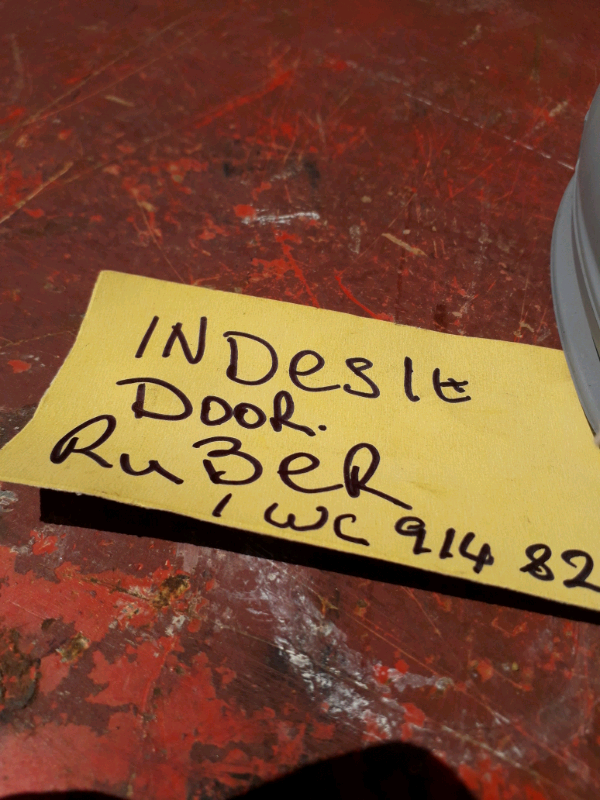 INDesIt
DOOR.
RuBBeR
IWC 914 82